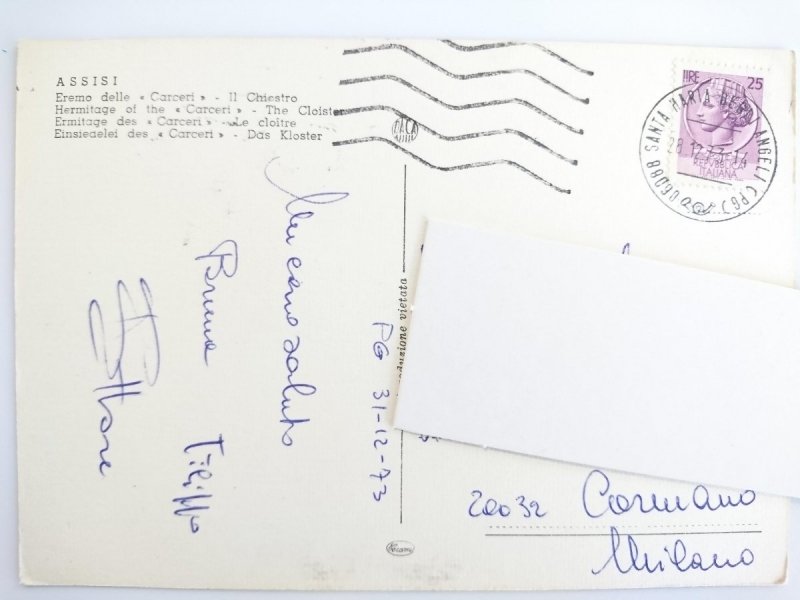 ASSISI
Eremo delle « Carceri » - Il Chiostro
Hermitage of the « Carceri » - The Cloister
Ermitage des « Carceri » - Le cloitre
Einsiedelei des « Carceri » - Das Kloster
LIRE 25
REPUBBLICA
ITALIANA
06088 SANTA MARIA DEGLI ANGELI (PG)
28.12.73-14
Un caro saluto
Bruna Filippo
Ettore
PG 31-12-73
20032 Cormano
Milano